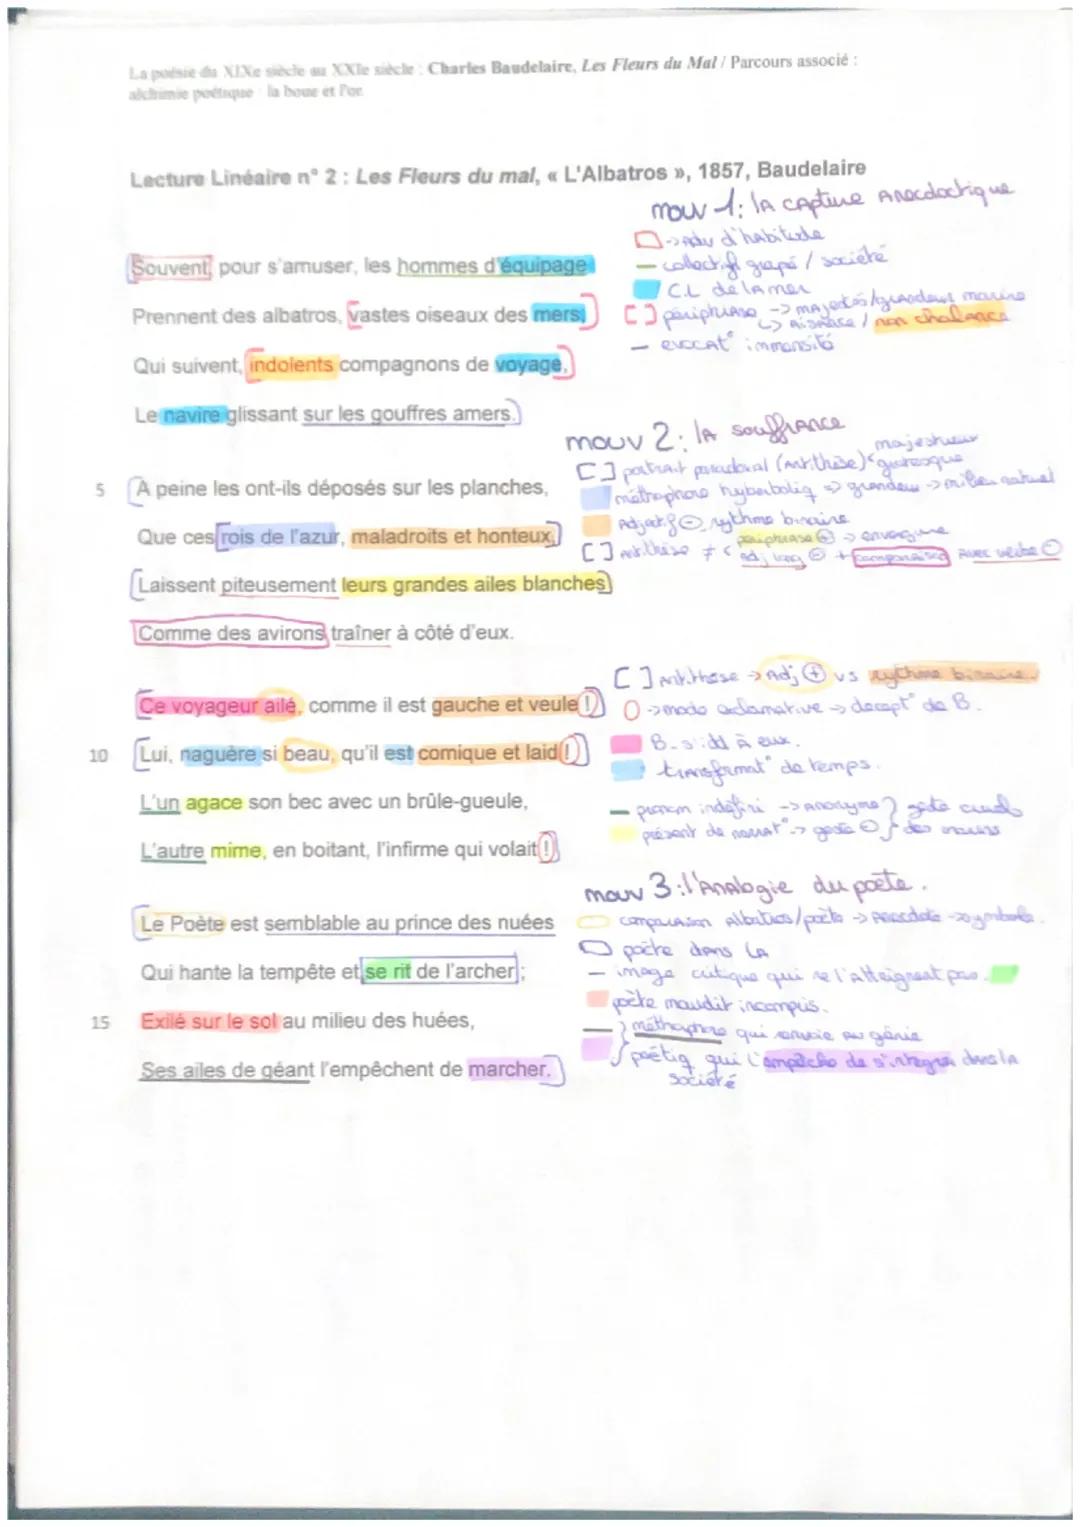 La poésie du XIXe siècle au XXIe siècle : Charles Baudelaire, Les Fleurs du Mal / Parcours associé :
alchimie poétique : la boue et l'or.
Lecture Linéaire n° 2 : Les Fleurs du mal, « L'Albatros », 1857, Baudelaire
mouv 1: la capture anecdoctique
Souvent, pour s'amuser, les hommes d'équipage
Prennent des albatros, vastes oiseaux des mers,
Qui suivent, indolents compagnons de voyage,
Le navire glissant sur les gouffres amers.
-> adv d'habitude
- collectif groupé / société
CL de la mer
[ ] périphrase -> majestés/grandeur marine
↳ aisance / non chalance
- evocat° immensité
mouv 2: la souffrance
5 A peine les ont-ils déposés sur les planches,
Que ces rois de l'azur, maladroits et honteux,
Laissent piteusement leurs grandes ailes blanches
Comme des avirons traîner à côté d'eux.
[ ] portrait paradoxal (antithèse) < majestueux
grotesque
méthaphore hyberboliq => grandeur -> milieu naturel
Adject.f ⊖, rythme binaire
[ ] antithèse ≠ < périphrase ⊕ -> envergure
adj ⊖ + comparaison avec verbe ⊖
Ce voyageur ailé, comme il est gauche et veule !
10 Lui, naguère si beau, qu'il est comique et laid !
L'un agace son bec avec un brûle-gueule,
L'autre mime, en boitant, l'infirme qui volait !
[ ] Antithèse -> Adj ⊕ vs rythme binaire.
-> mode exclamative -> decept° de B.
B. s'idd à eux.
transformat° de temps.
- pronom indéfini -> anonyme } geste cruels
présent de narrat° -> geste ⊖ } des marins
mouv 3 : l'Analogie du poète.
Le Poète est semblable au prince des nuées
Qui hante la tempête et se rit de l'archer ;
15 Exilé sur le sol au milieu des huées,
Ses ailes de géant l'empêchent de marcher.
comparaison Albatros/poète -> Anecdote -> symbole.
poète dans la
- image critique qui ne l'atteignent pas.
poète maudit incompris.
- } méthaphore qui renvoie au génie
poétiq qui l'empêche de s'intégrer dans la
société